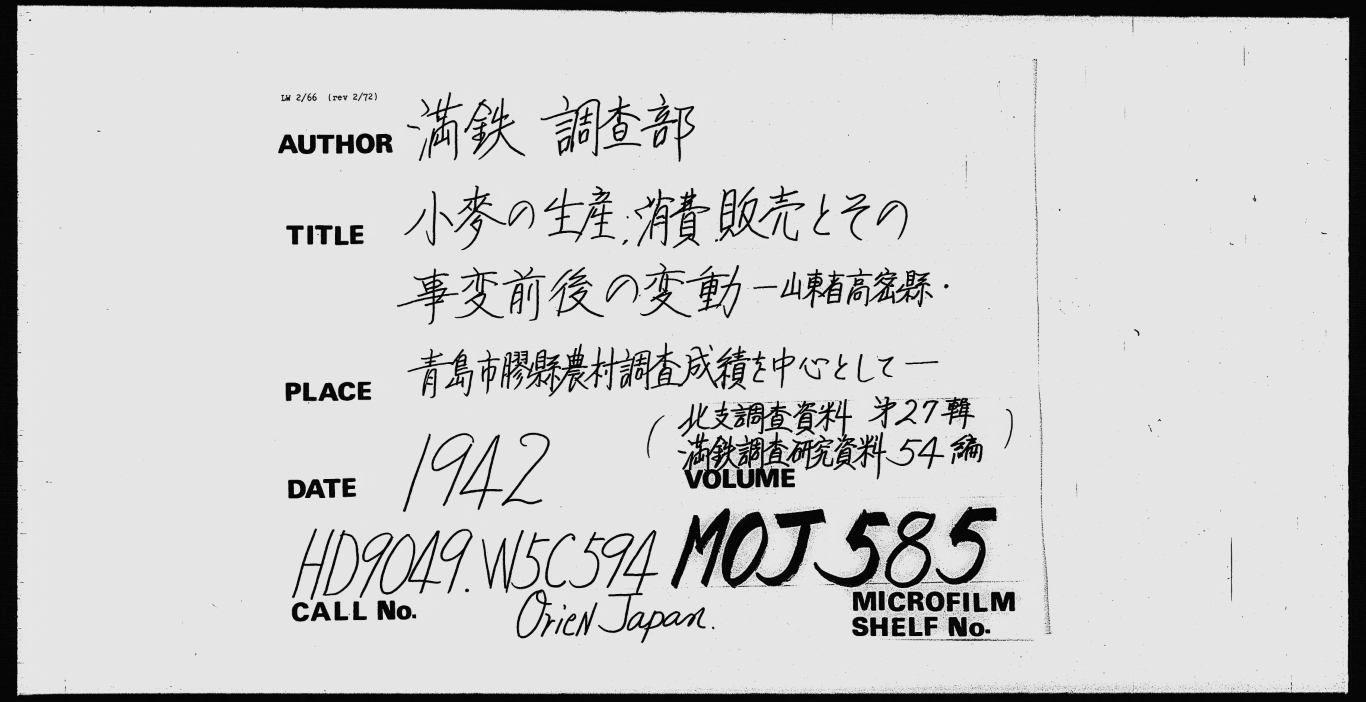 LW 2/66 (rev 2/72)
AUTHOR 満鉄 調査部
TITLE 小麥の生産,消費,販売とその
事変前後の変動—山東省高密縣・
PLACE 青島市膠縣農村調査成績を中心として—
(北支調査資料 第27輯
満鉄調査研究資料 54編)
DATE 1942
VOLUME
HD9049.W5C594 MOJ 585
CALL No. Orien Japan.
MICROFILM
SHELF No.